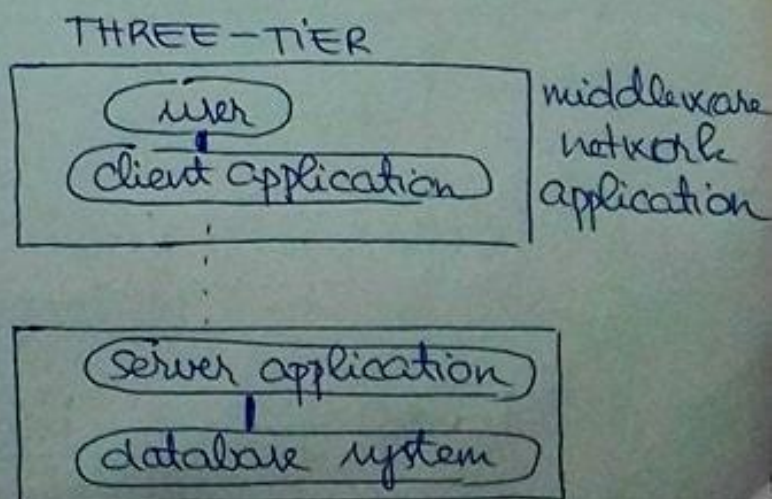 THREE-TIER
user
client application
middleware
network
application
server application
database system